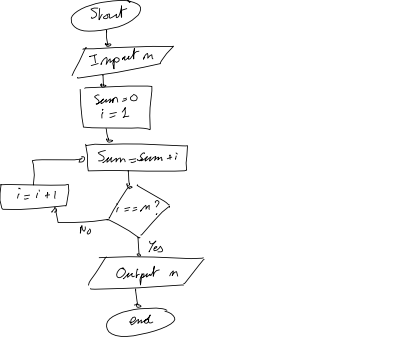 Start
Input n
Sum=0
i = 1
Sum=Sum+i
i = i+1
i == n?
No
Yes
Output n
end